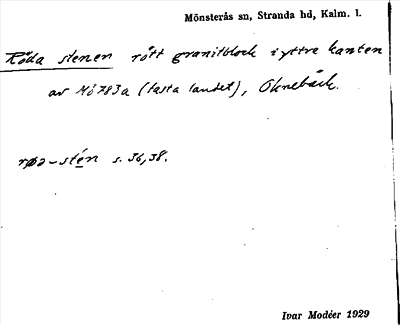 Mönsterås sn, Stranda hd, Kalm. l.
Röda stenen rött granitblock i yttre kanten
av Mö 783a (fasta landet), Oknebäck.
røə-stén s. 36, 38.
Ivar Modéer 1929